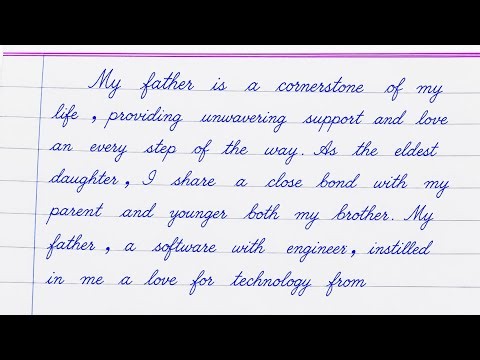 My father is a cornerstone of my
life , providing unwavering support and love
an every step of the way. As the eldest
daughter , I share a close bond with my
parent and younger both my brother. My
father , a software with engineer , instilled
in me a love for technology from